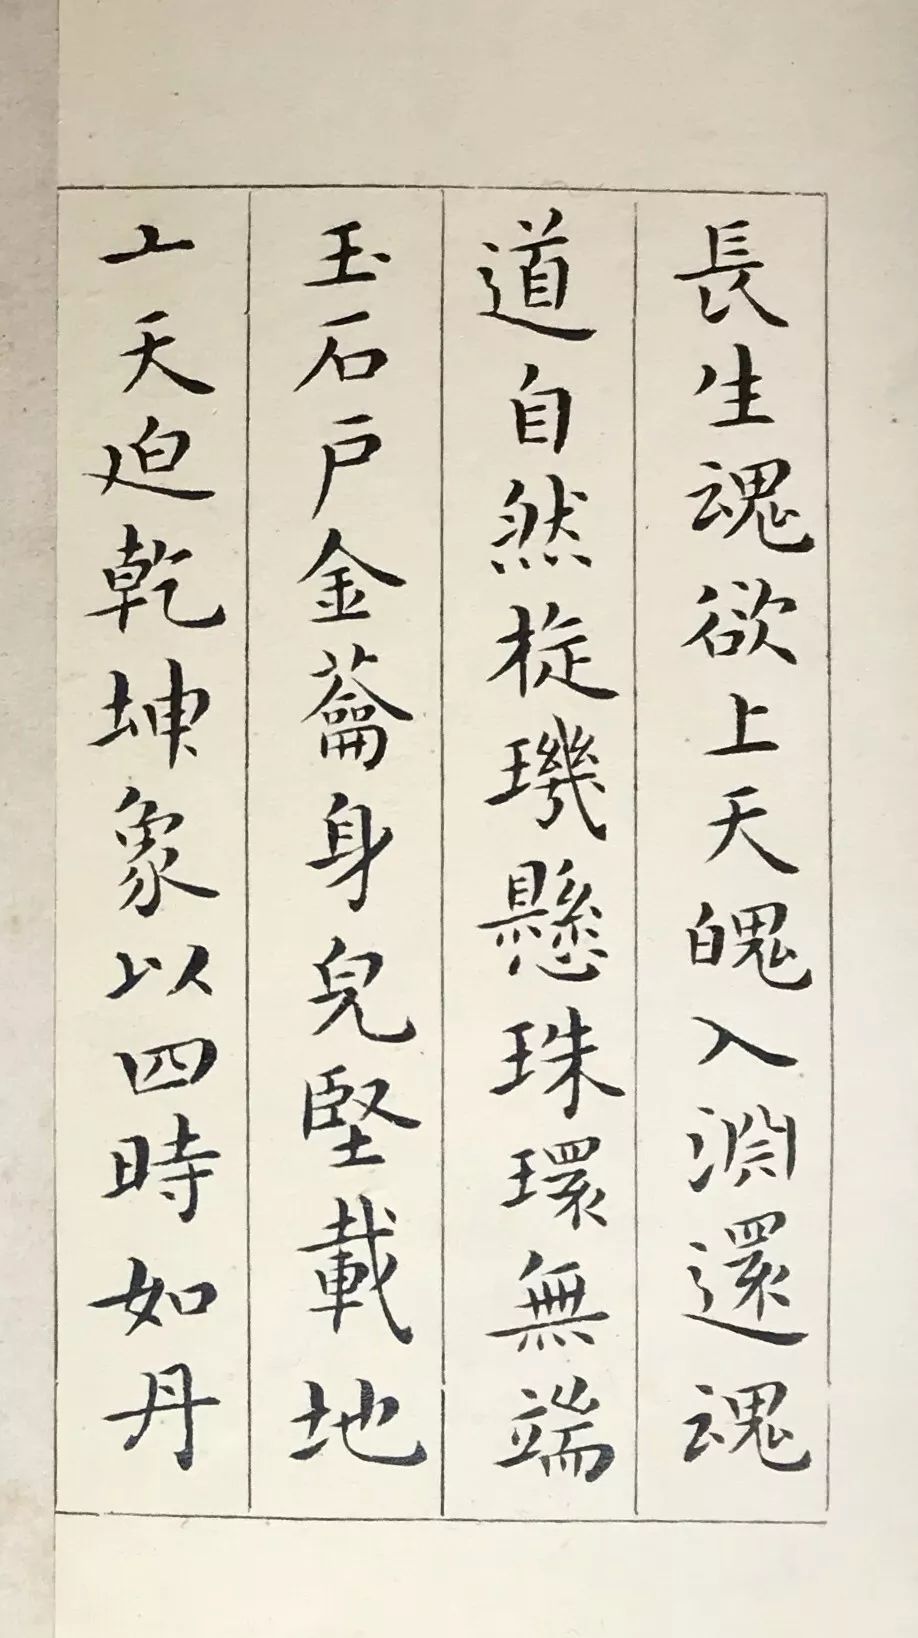 長生魂欲上天魄入淵還魂
道自然㫌璣懸珠環無端
玉石戶金蘥身皃堅載地
亠天迫乾坤象以四時如丹